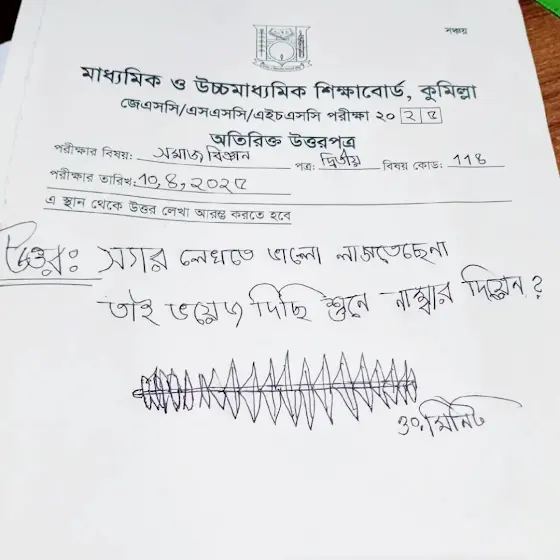 সঞ্চয়
মাধ্যমিক ও উচ্চমাধ্যমিক শিক্ষাবোর্ড, কুমিল্লা
জেএসসি/এসএসসি/এইচএসসি পরীক্ষা ২০২৫
অতিরিক্ত উত্তরপত্র
পরীক্ষার বিষয়: সমাজ বিজ্ঞান পত্র: দ্বিতীয় বিষয় কোড: 118
পরীক্ষার তারিখ: 10,8,২০২৫
এ স্থান থেকে উত্তর লেখা আরম্ভ করতে হবে
উত্তর: স্যার লেখতে ভালো লাজতেছেনা
তাই ভয়েজ দিছি শুনে নাম্বার দিয়েন?
৩০,মিনিট